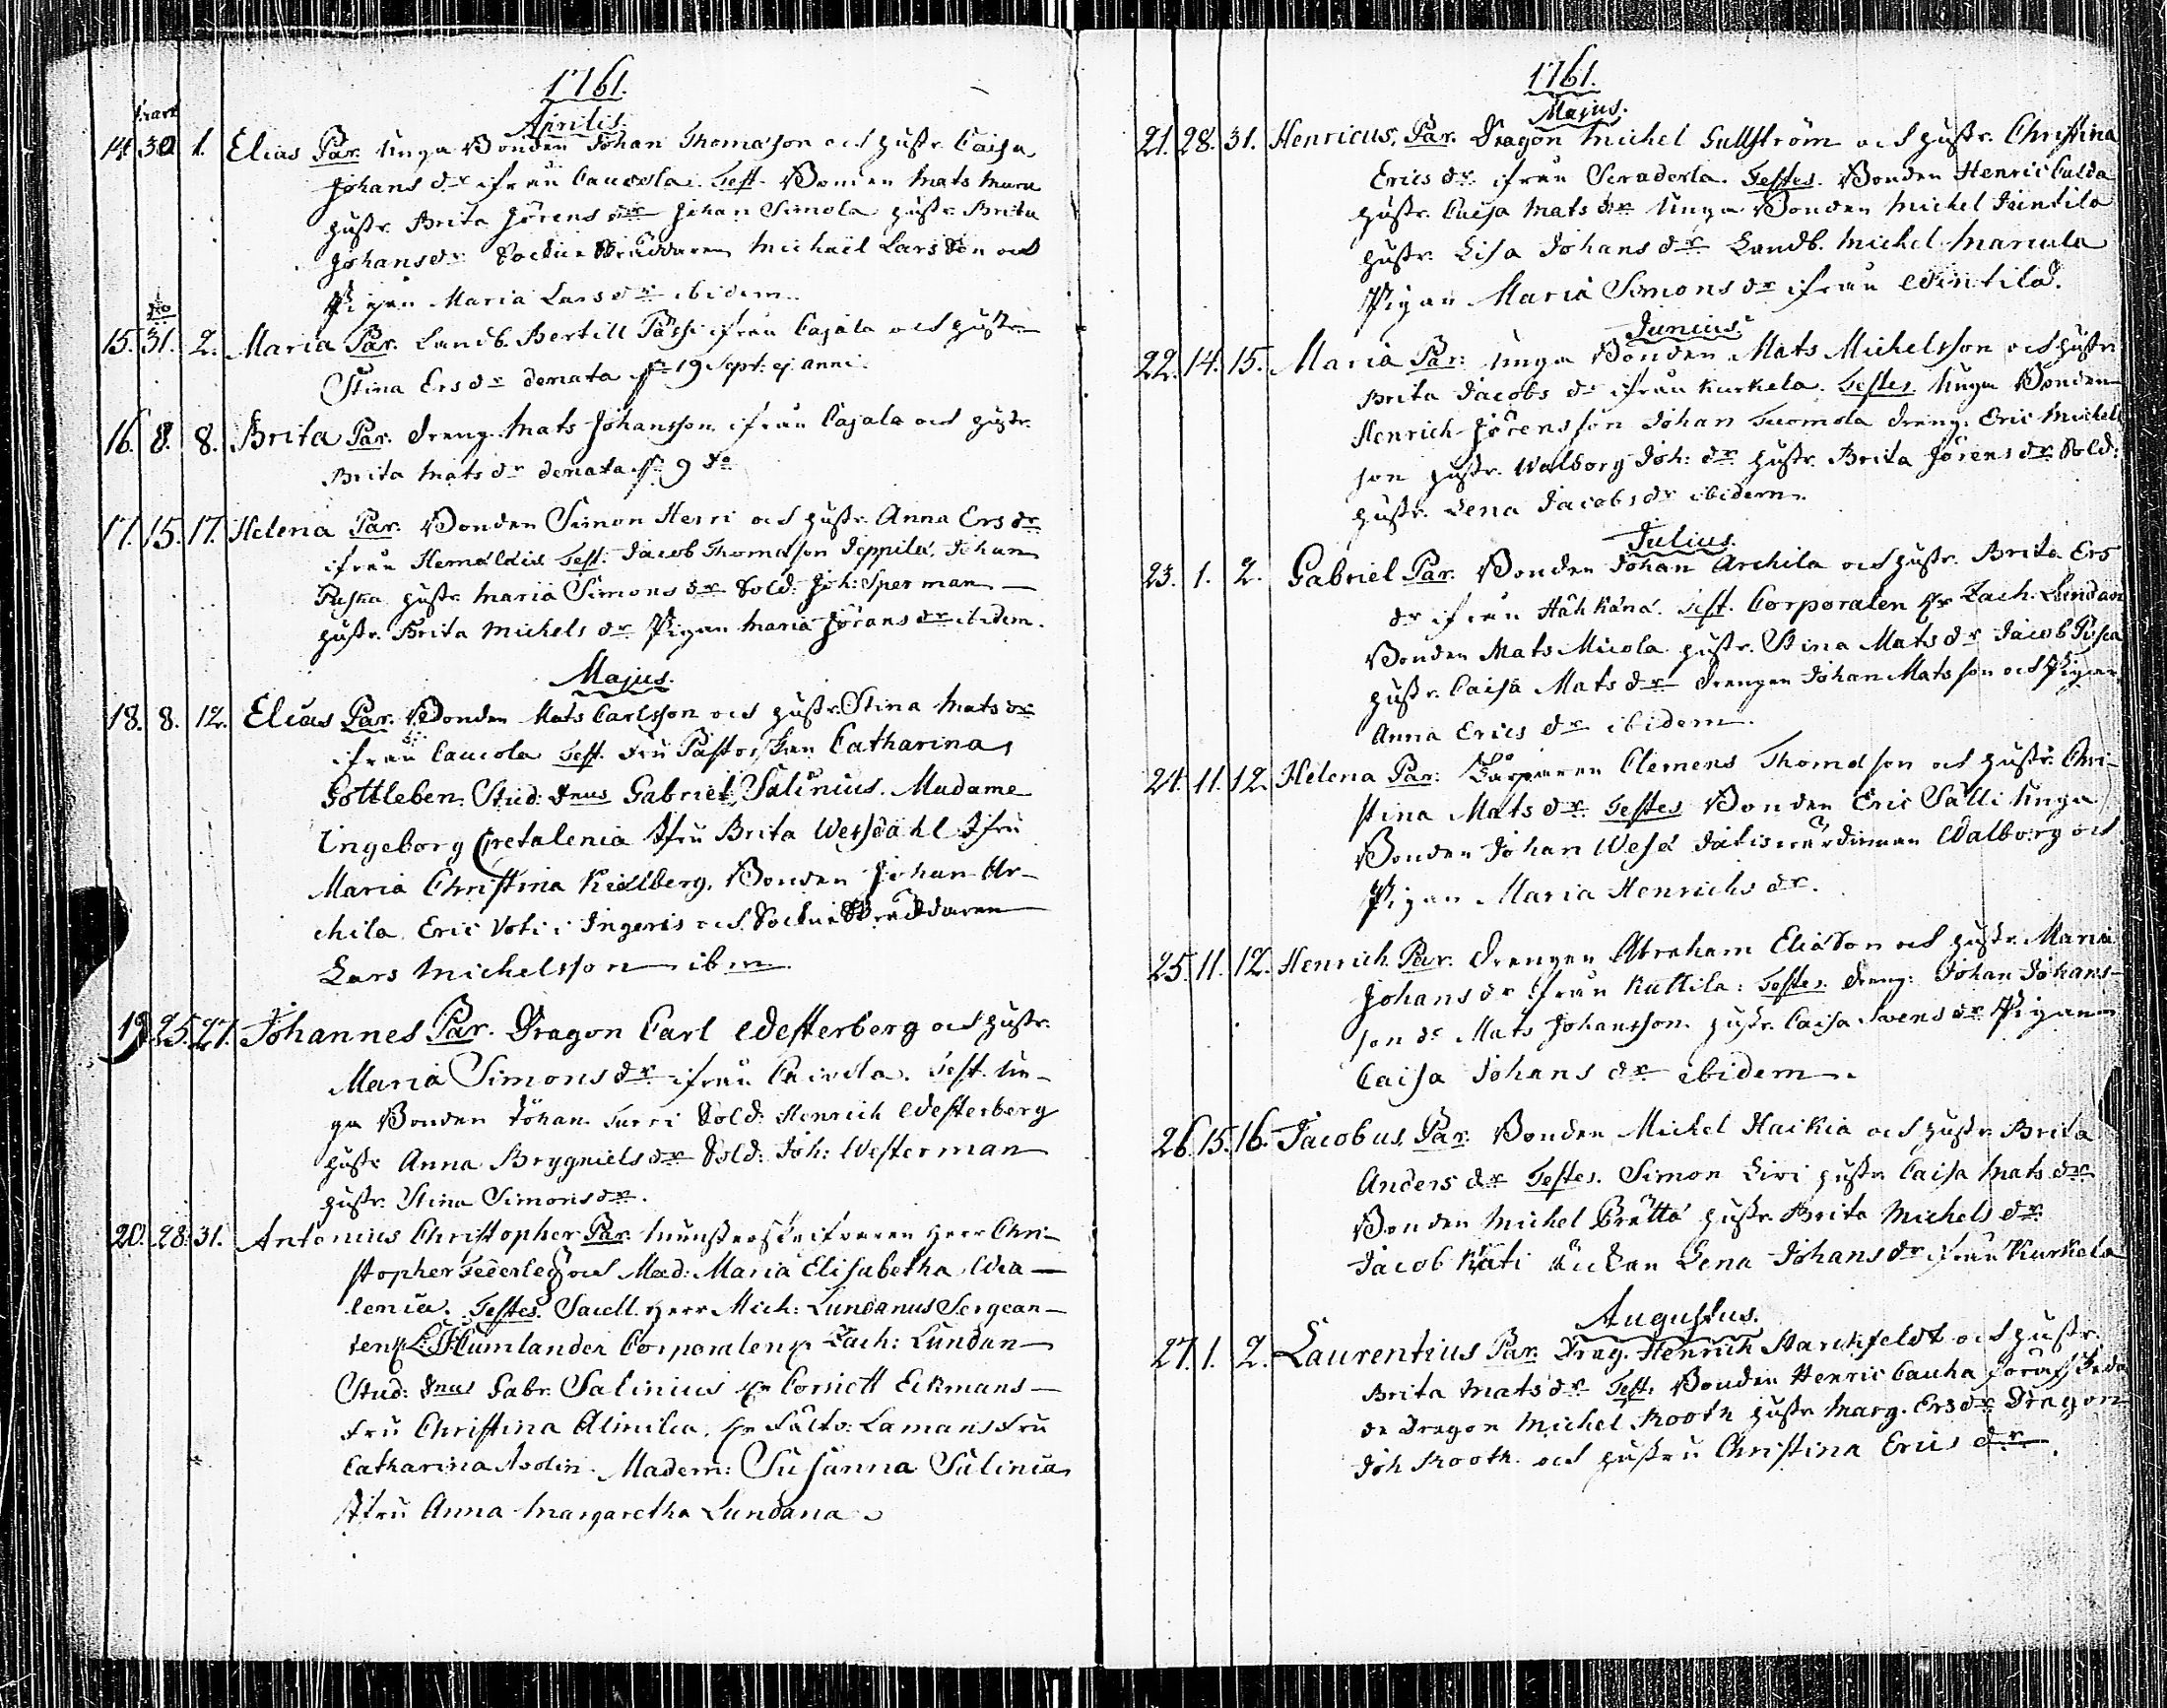 1761.
Aprilis.
Mart
14. 30 1. Elias Par. Unga Bonden Johan Thomasson och hustr. Caisa
Johans dr ifrån Caucola. Test. Bonden Mats Mara
hustr. Brita Jörens dr Johan Simola hustr. Brita
Johansdr Sockne Skräddaren Michaël Larsson och
Pigan Maria Larsdr ibidem.
do
15. 31. 2. Maria Par. Landb. Bertill Pässi ifrån Cajala och hustr.
Stina Ersdr denata 19 Sept. ej. anni.
16. 8. 8. Brita Par. Dreng. Mats Johansson ifrån Cajala och hustr.
Brita Mats dr denata 9 do
17. 15. 17. Helena Par. Bonden Simon Herri och hustr. Anna Ersdr
ifrån Test. Jacob Thomasson Jeppilä, Johan
Puska hustr. Maria Simonsdr Sold. Joh: Sperman
hustr. Brita Michels dr Pigan Maria Jöransdr ibidem.
Majus.
18. 8. 12. Elias Par. Bonden Mats Carlsson och hustr. Stina Matsdr
ifrån Caucola Test. Fru Pastorskan Catharina
Gottleben. Stud: Dnus Gabriel Salinius. Madame
Ingeborg Cretalenia Jfru Brita Wessdahl Jfru
Maria Christina Kiellberg, Bonden Johan Ar-
chila Eric Voti i Ingeris och Sockne Skräddaren
Lars Michelsson ibm.
19. 25. 27. Johannes Par. Dragon Carl Westerberg och hustr.
Maria Simonsdr ifrån Test. Un-
ga Bonden Johan Turri Sold: Henrich Westerberg
hustr. Anna Brygnielsdr Sold: Joh: Westerman
hustr. Stina Simonsdr.
20. 28. 31. Antonius Christopher Par. Munsterskrifvaren Herr Chri-
stopher Federley och Mad: Maria Elisabetha Wia-
lenia. Testes. Sacell. Herr Mich: Lundanus Sergean-
ten Humlander Corporalen Zach: Lundan
Stud: Dnus Gabr. Salinius Cornett Eckmans
Fru Christina Almilia, Fältv: Lamans Fru
Catharina Asolin. Madem: Susanna Salinia
Jfru Anna Margaretha Lundana
1761.
Majus.
21. 28. 31. Henricus, Par. Dragon Michel Gullström och hustr. Christina
Erics dr ifrån Testes. Bonden Henric Calda
hustr. Caisa Mats dr Unga Bonden Michel Juntila
hustr. Lisa Johans dr Landb. Michel Marcula
Pigan Maria Simons dr ifrån Wintilä.
Junius.
22. 14. 15. Maria Par: Unga Bonden Mats Michelsson och hustr.
Brita Jacobs dr ifrån Kurkela. Testes. Unga Bonden
Henrich Jörensson Johan Tuomola Dreng. Eric Michels
son hustr. Walborg Joh: dr hustr. Brita Jörensdr Sold:
hustr. Lena Jacobsdr ibidem.
Julius.
23. 1. 2. Gabriel Par. Bonden Johan Archila och hustr. Brita Ers
dr ifrån Hähkänä. Test. Corporalen Hr Zach. Lundan
Bonden Mats Micola hustr. Stina Mats dr Jacob Pusca
hustr. Caisa Mats dr Drengen Johan Matsson och Pigan
Anna Erics dr ibidem.
24. 11. 12. Helena Par: Clemens Thomasson och hustr. Chri-
stina Mats dr Testes Bonden Eric Sälli Unga
Bonden Johan Wesa Walborg och
Pigan Maria Henrichs dr.
25. 11. 12. Henrich Par. Drengen Abraham Eliasson och hustr. Maria
Johansdr ifrån Kuttila: Testes. Dreng: Johan Johans-
son do Mats Johansson hustr. Caisa Svensdr Pigan
Caisa Johans dr ibidem.
26. 15. 16. Jacobus Par. Bonden Michel Haikia och hustr. Brita
Anders dr Testes. Simon Livi hustr. Caisa Matsdr
Bonden Michel Prättä hustr. Brita Michels dr
Jacob Käti Lena Johans dr ifrån Kurkela
Augustus.
27. 1. 2. Laurentius Par. Drag. Henrich Starckfeldt och hustr.
Brita Matsdr Test. Bonden Henric Cauha
de Dragon Michel Rooth hustr. Marg. Ersdr Dragon
Joh Rooth och hustru Christina Erics dr.